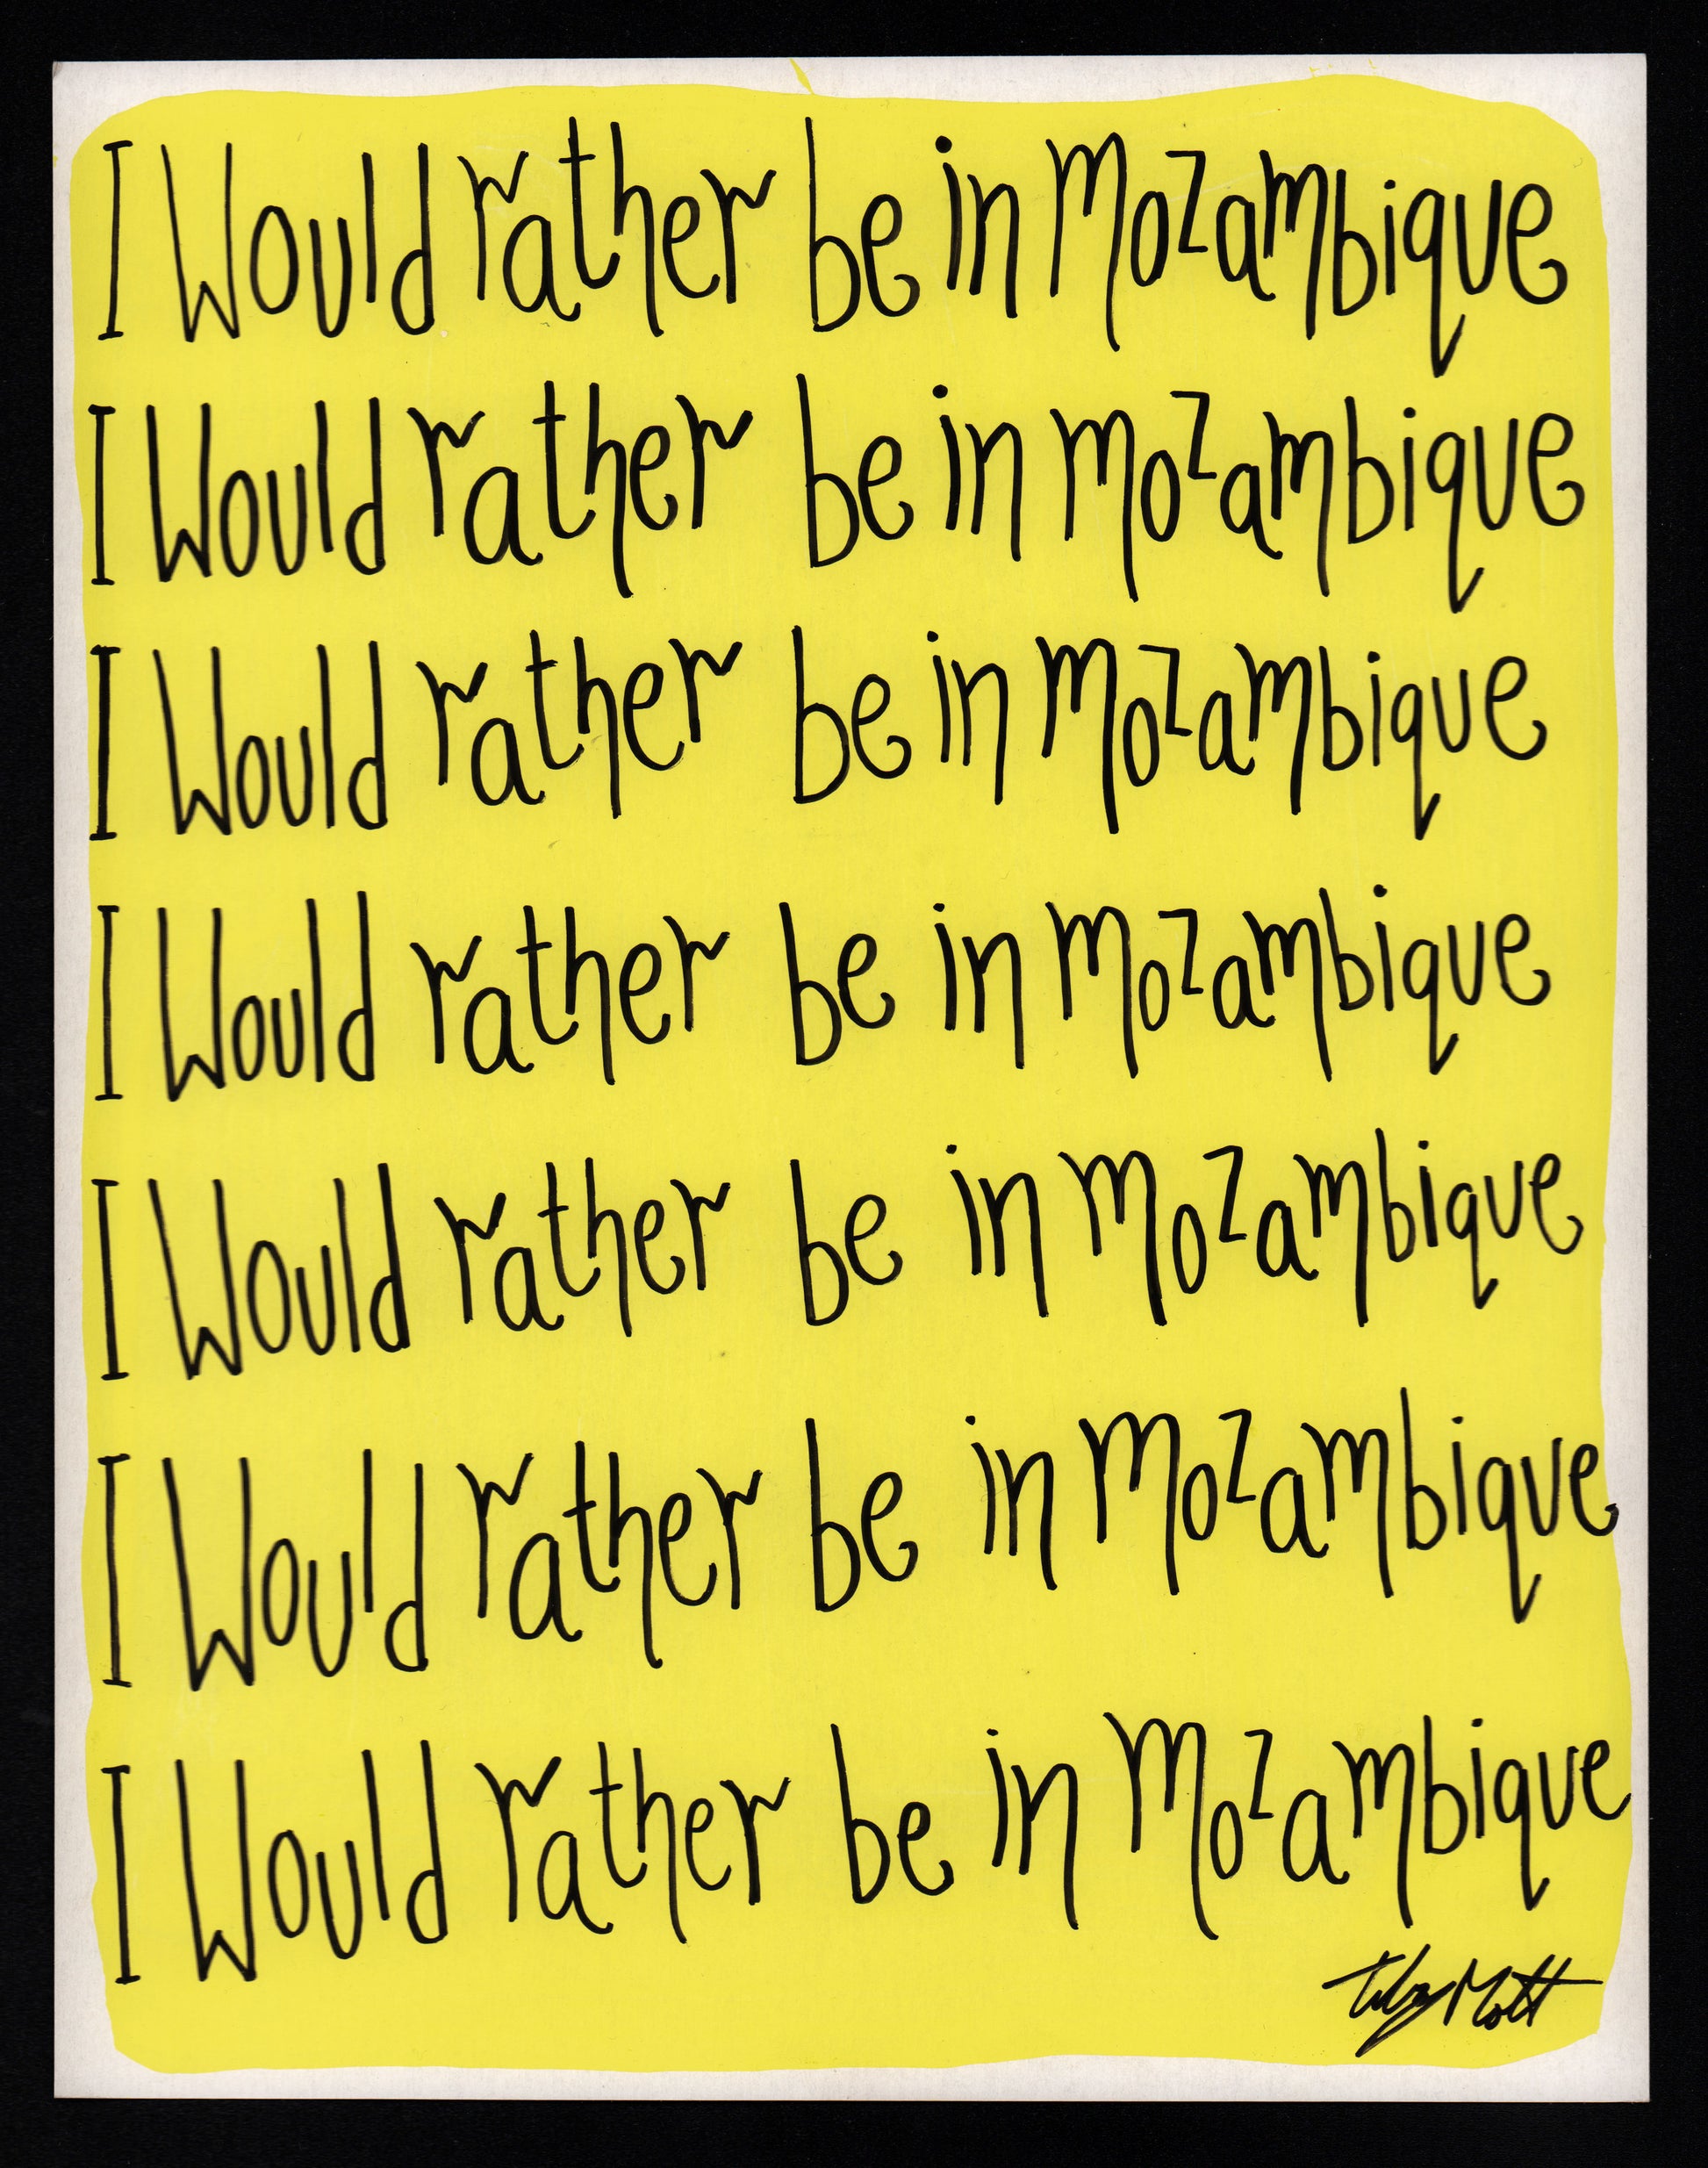 I Would rather be in Mozambique
I Would rather be in Mozambique
I Would rather be in Mozambique
I Would rather be in Mozambique
I Would rather be in Mozambique
I Would rather be in Mozambique
I Would rather be in Mozambique
Toby Mott